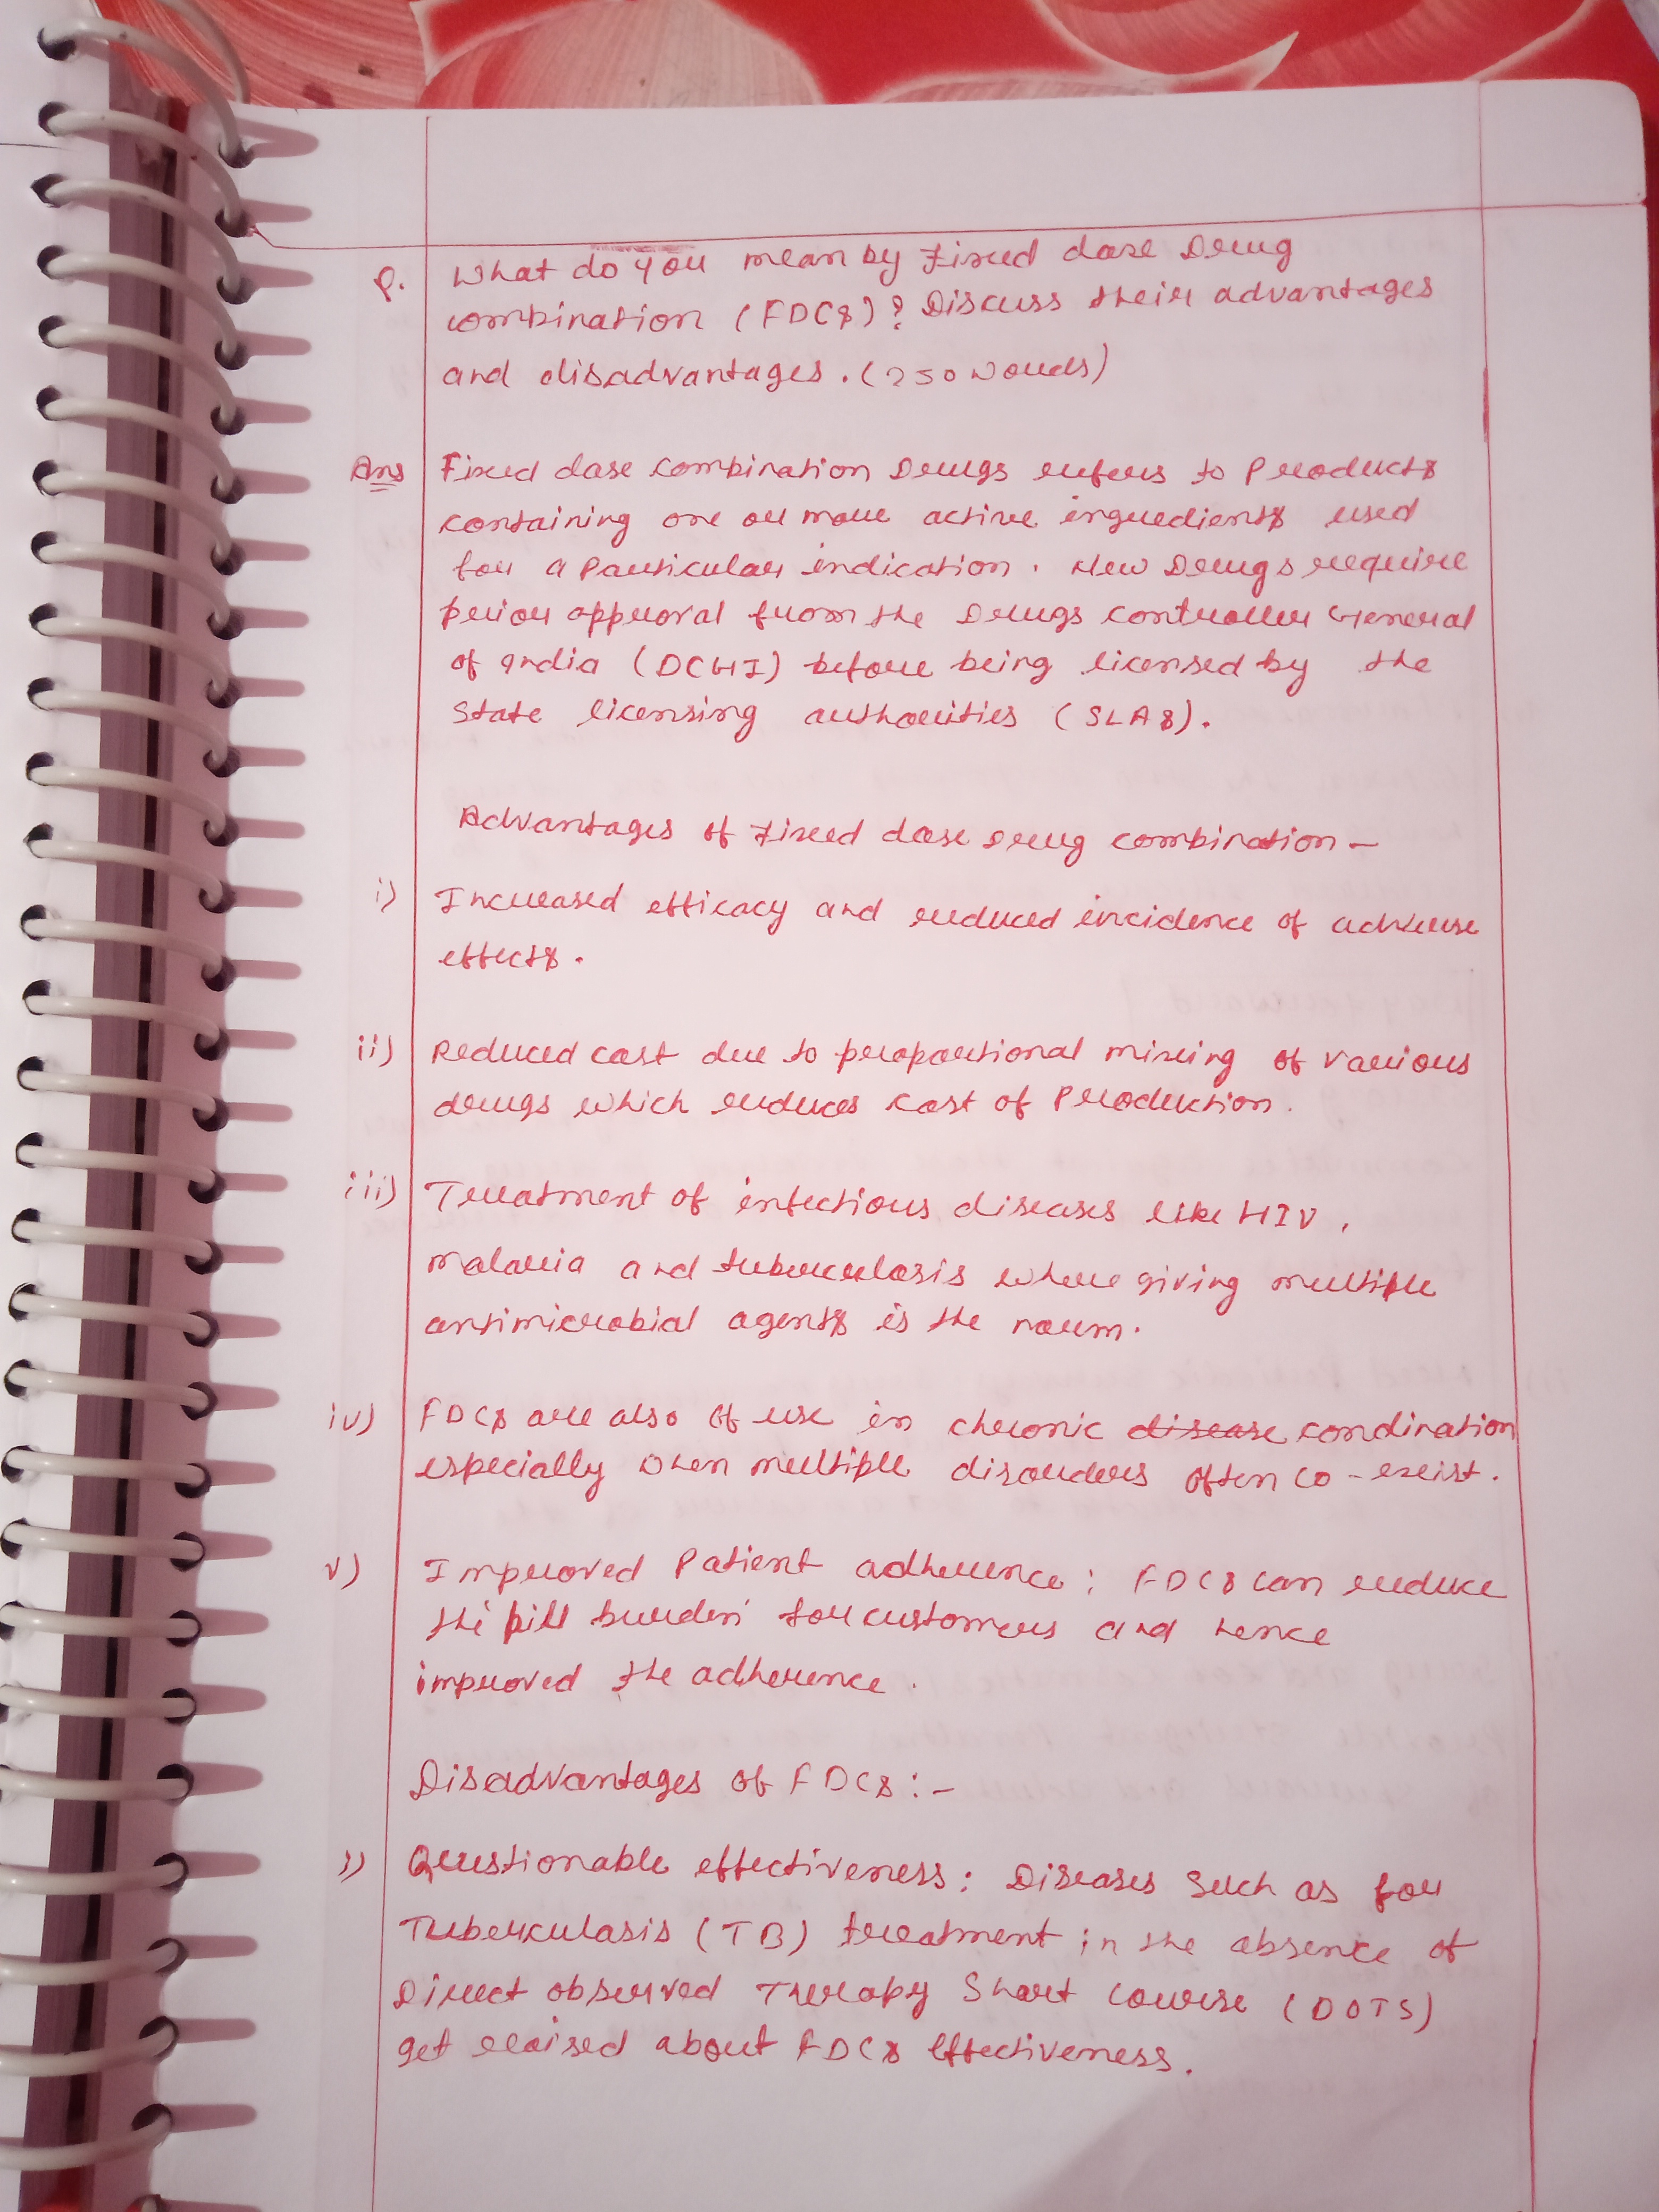 Q. What do you mean by Fixed dose Drug
combination (FDCs)? Discuss their advantages
and disadvantages. (250 words)
Ans Fixed dose combination Drugs refers to Products
containing one or more active ingredients used
for a Particular indication. New Drugs require
prior approval from the Drugs controller General
of India (DCGI) before being licensed by the
State licensing authorities (SLAs).
Advantages of Fixed dose Drug combination -
i) Increased efficacy and reduced incidence of adverse
effects.
ii) Reduced cost due to proportional mixing of various
drugs which reduces cost of Production.
iii) Treatment of infectious diseases like HIV,
malaria and tuberculosis where giving multiple
antimicrobial agents is the norm.
iv) FDCs are also of use in chronic disease condination
especially when multiple disorders often co-exist.
v) Improved Patient adherence: FDCs can reduce
the pill burden for customers and hence
improved the adherence.
Disadvantages of FDCs:-
i) Questionable effectiveness: Diseases such as for
Tuberculosis (TB) treatment in the absence of
Direct observed Therapy Short course (DOTS)
get raised about FDCs effectiveness.